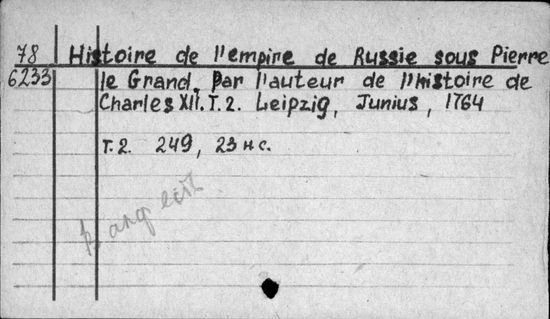 78 Histoire de l'empire de Russie sous Pierre
6233 le Grand, Par l'auteur de l'histoire de
Charles XII. T. 2. Leipzig, Junius, 1764
T. 2. 249, 23 н с.